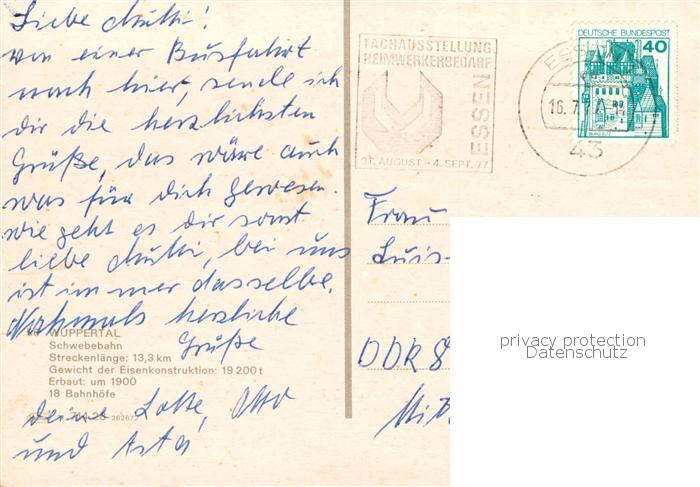 Liebe Mutti!
von einer Busfahrt
nach hier, sende ich
dir die herzlichsten
Grüße, das wäre auch
was für dich gewesen.
wie geht es dir sonst
liebe Mutti, bei uns
ist immer dasselbe.
Nochmals herzliche
Grüße
WUPPERTAL
Schwebebahn
Streckenlänge: 13,3 km
Gewicht der Eisenkonstruktion: 19 200 t
Erbaut: um 1900
18 Bahnhöfe
deine Lotte, Otto
und Asta
FACHAUSSTELLUNG
HEIMWERKERBEDARF
ESSEN
31. AUGUST - 4. SEPT. 77
ESSEN
16.7.77
43
DEUTSCHE BUNDESPOST
40
Frau
Luis-
DDR 8
privacy protection
Datenschutz